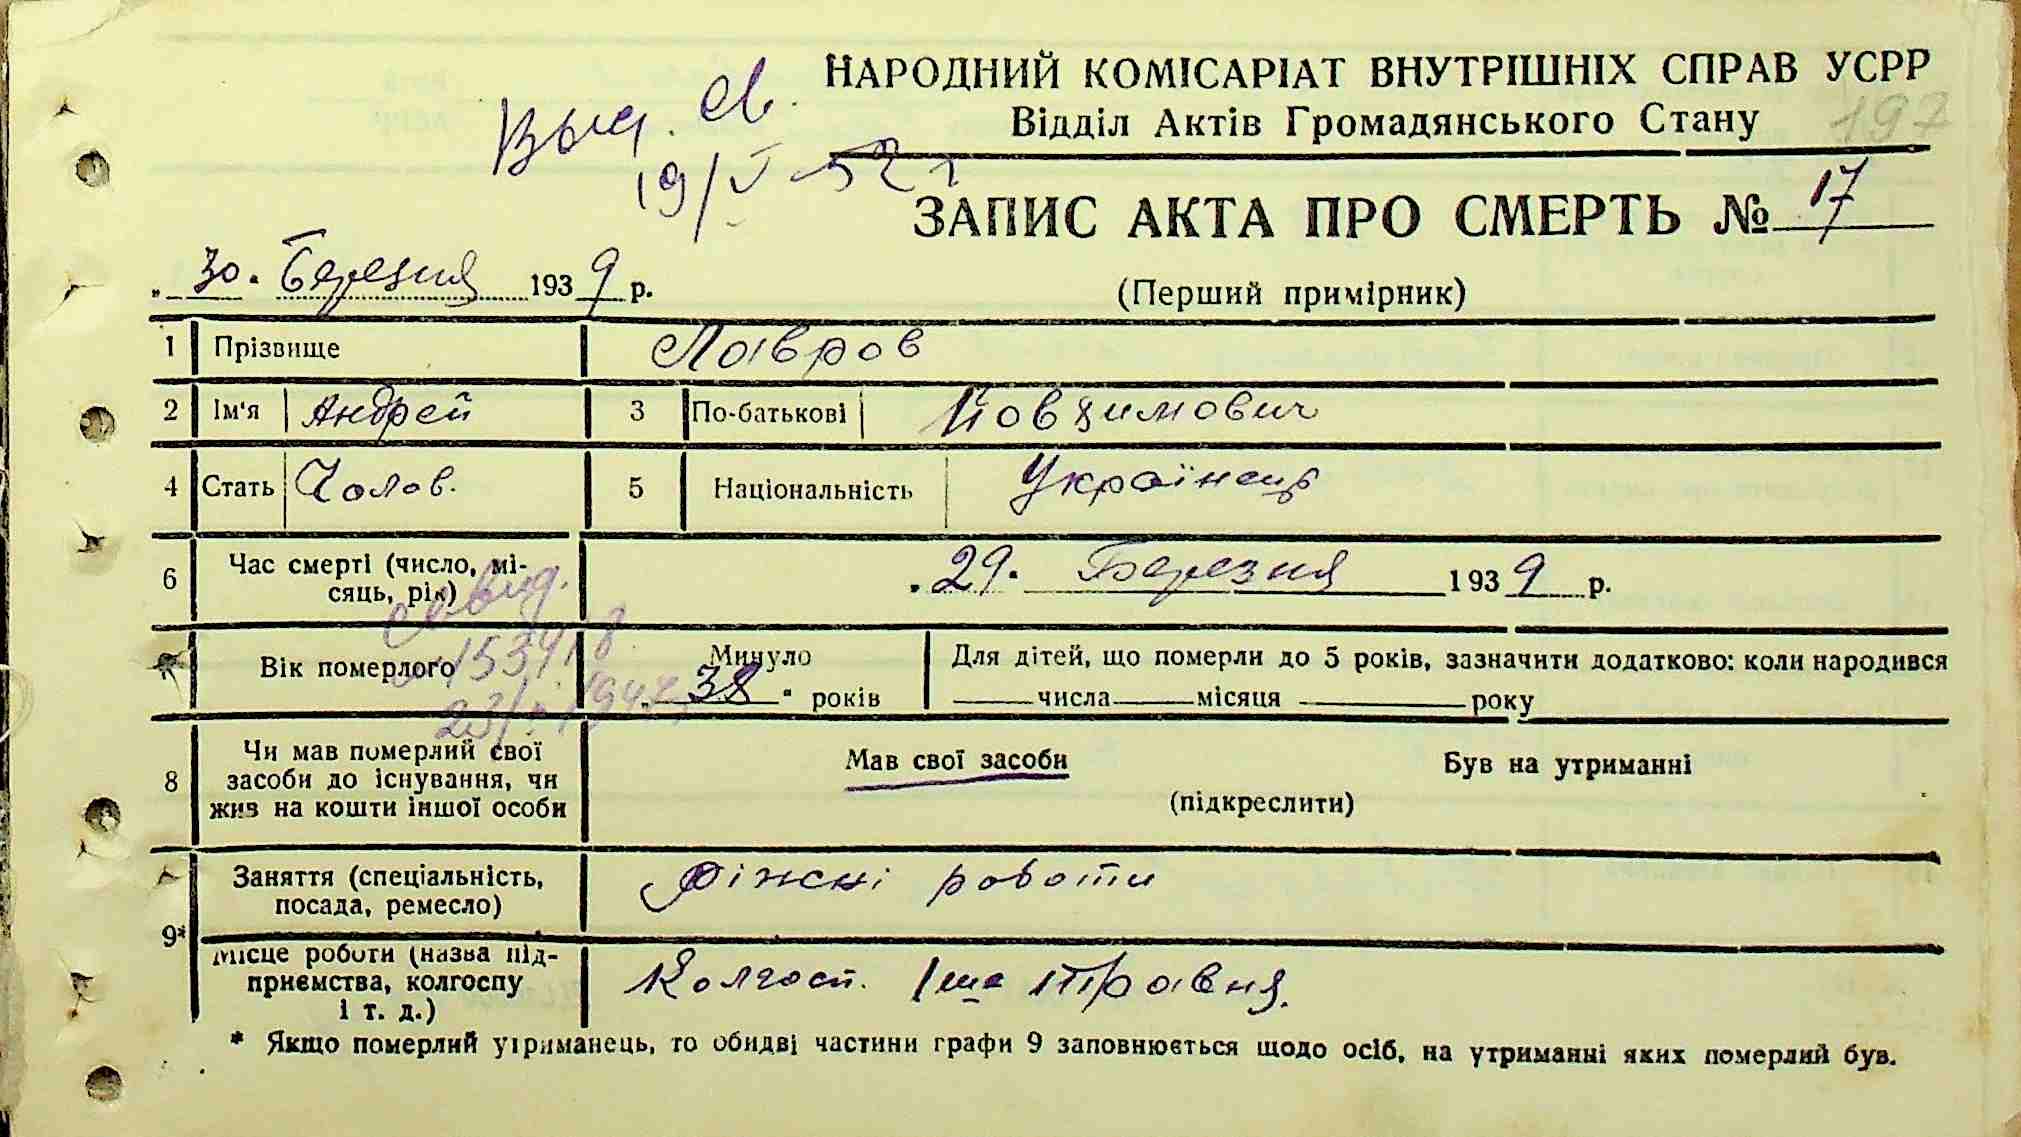 НАРОДНИЙ КОМІСАРІАТ ВНУТРІШНІХ СПРАВ УСРР
Відділ Актів Громадянського Стану
197
19/V-52 г
ЗАПИС АКТА ПРО СМЕРТЬ № 17
„ 30 " Березня 1939 р.
(Перший примірник)
1 Прізвище Лавров
2 Ім'я Андрей 3 По-батькові
4 Стать Чолов. 5 Національність Українець
6 Час смерті (число, мі-
сяць, рік)
„ 29 " Березня 1939 р.
Вік померлого
Минуло
„ 38 " років
Для дітей, що померли до 5 років, зазначити додатково: коли народився
числа місяця року
8 Чи мав померлий свої
засоби до існування, чи
жив на кошти іншої особи
Мав свої засоби Був на утриманні
(підкреслити)
9* Заняття (спеціальність,
посада, ремесло)
Ріжні роботи
Місце роботи (назва під-
приємства, колгоспу
і т. д.)
Колгосп. 1ше Травня.
* Якщо померлий утриманець, то обидві частини графи 9 заповнюється щодо осіб, на утриманні яких померлий був.